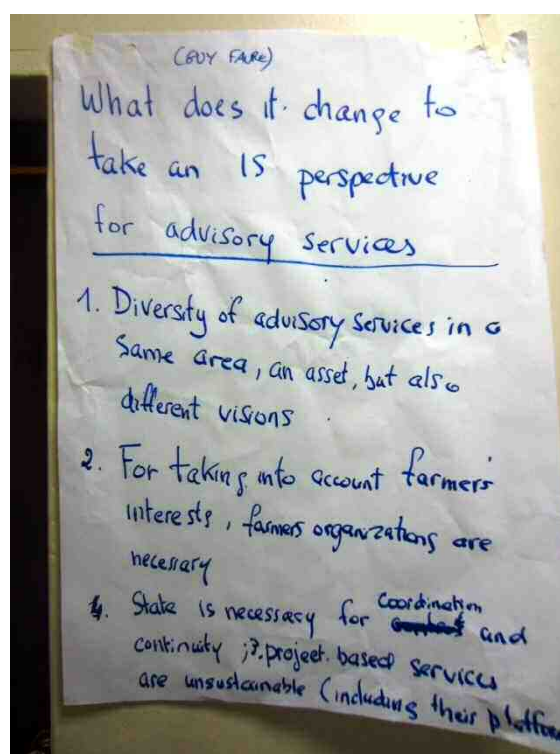 (GUY FAURE)
What does it change to
take an IS perspective
for advisory services
1. Diversity of advisory services in a
Same area, an asset, but also
different visions
2. For taking into account farmers
interests, farmers organizations are
necessary
State is necessary for Coordination and
continuity project based services
are unsustainable (including their